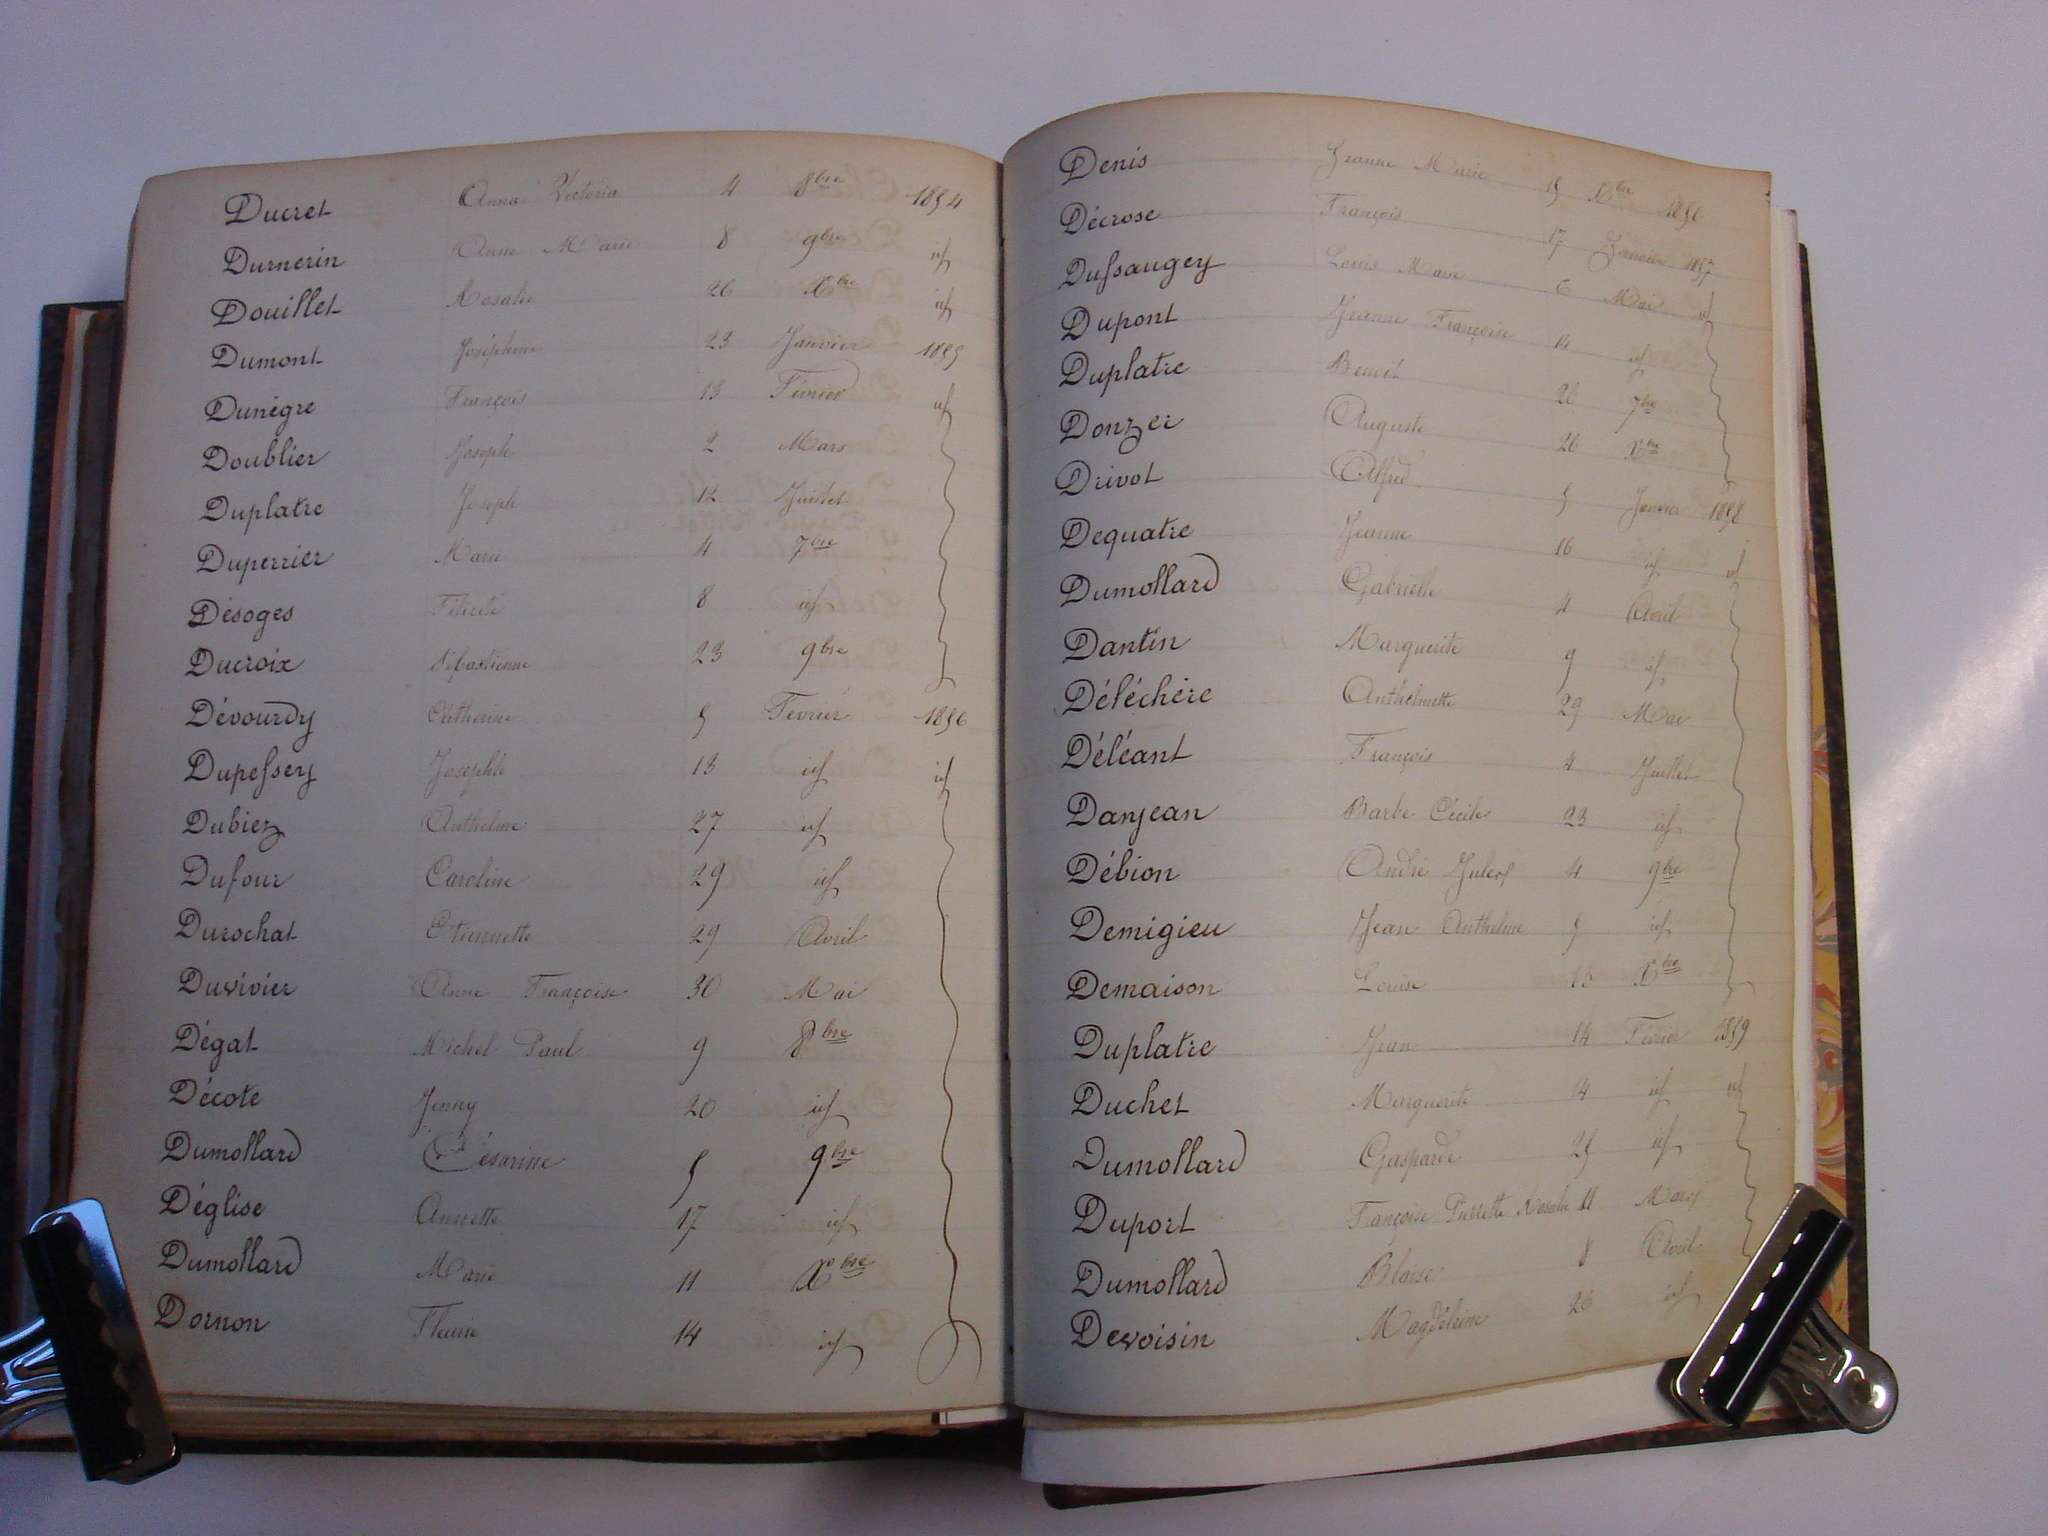 Ducret Anna Victoria 4 8bre 1854
Durnerin Anne Marie 8 9bre id
Douillet Rosalie 26 Xbre id
Dumont Joséphine 23 Janvier 1855
Dunègre François 13 Février id
Doublier Joseph 2 Mars
Duplatre Joseph 12 Juillet
Duperrier Marie 4 7bre
Désoges Félicité 8 id
Ducroix Sébastienne 23 9bre
Dévourdy Catherine 5 Février 1856
Dupessey Josephte 13 id id
Dubiez Anthelme 27 id
Dufour Caroline 29 id
Durochat Etiennette 29 Avril
Duvivier Anne Françoise 30 Mai
Dégat Michel Paul 9 8bre
Décote Jenny 20 id
Dumollard Césarine 5 9bre
Déglise Annette 17 id
Dumollard Marie 11 Xbre
Dornon Fleurie 14 id
Denis Jeanne Marie 15 Xbre 1856
Décrose François 17 Janvier 1857
Dussaugey Louis Marie 6 Mai id
Dupont Jeanne Françoise 14 id
Duplatre Benoit 26 7bre
Donzer Auguste 26 Xbre
Drivot Alfred 5 Janvier 1858
Dequatre Jeanne 16 id id
Dumollard Gabrielle 4 Avril
Dantin Marguerite 9 id
Déléchère Anthelmette 29 Mai
Déléant François 4 Juillet
Danjean Barbe Cécile 23 id
Débion André Jules 4 9bre
Demigieu Jean Anthelme 5 id
Demaison Louise 13 Xbre
Duplatre Jean 14 Février 1859
Duchet Marguerite 14 id id
Dumollard Gasparde 25 id
Duport Françoise Pierrette Rosalie 11 Mars
Dumollard Blaise 8 Avril
Devoisin Magdeleine 26 id